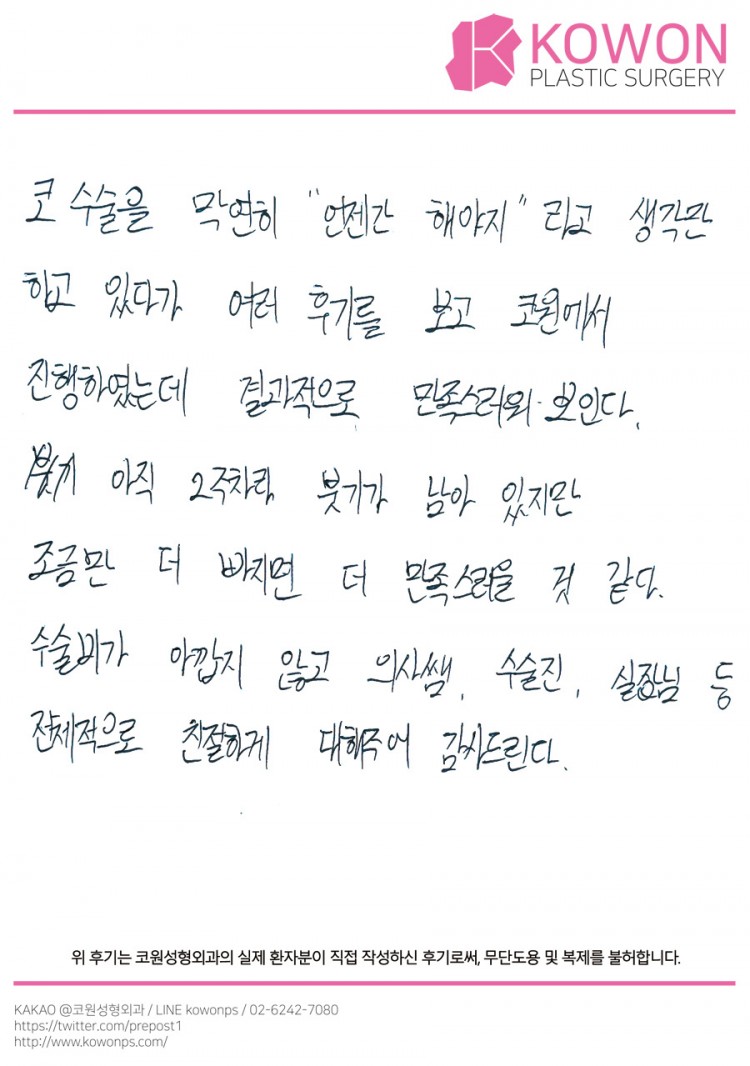 KOWON
PLASTIC SURGERY
코 수술을 막연히 "언젠간 해야지" 라고 생각만
하고 있다가 여러 후기를 보고 코원에서
진행하였는데 결과적으로 만족스러워 보인다.
아직 2주차라 붓기가 남아 있지만
조금만 더 빠지면 더 만족스러울 것 같다.
수술비가 아깝지 않고 의사쌤, 수술진, 실장님 등
전체적으로 친절하게 대해주어 감사드린다.
위 후기는 코원성형외과의 실제 환자분이 직접 작성하신 후기로써, 무단도용 및 복제를 불허합니다.
KAKAO @코원성형외과 / LINE kowonps / 02-6242-7080
https://twitter.com/prepost1
http://www.kowonps.com/